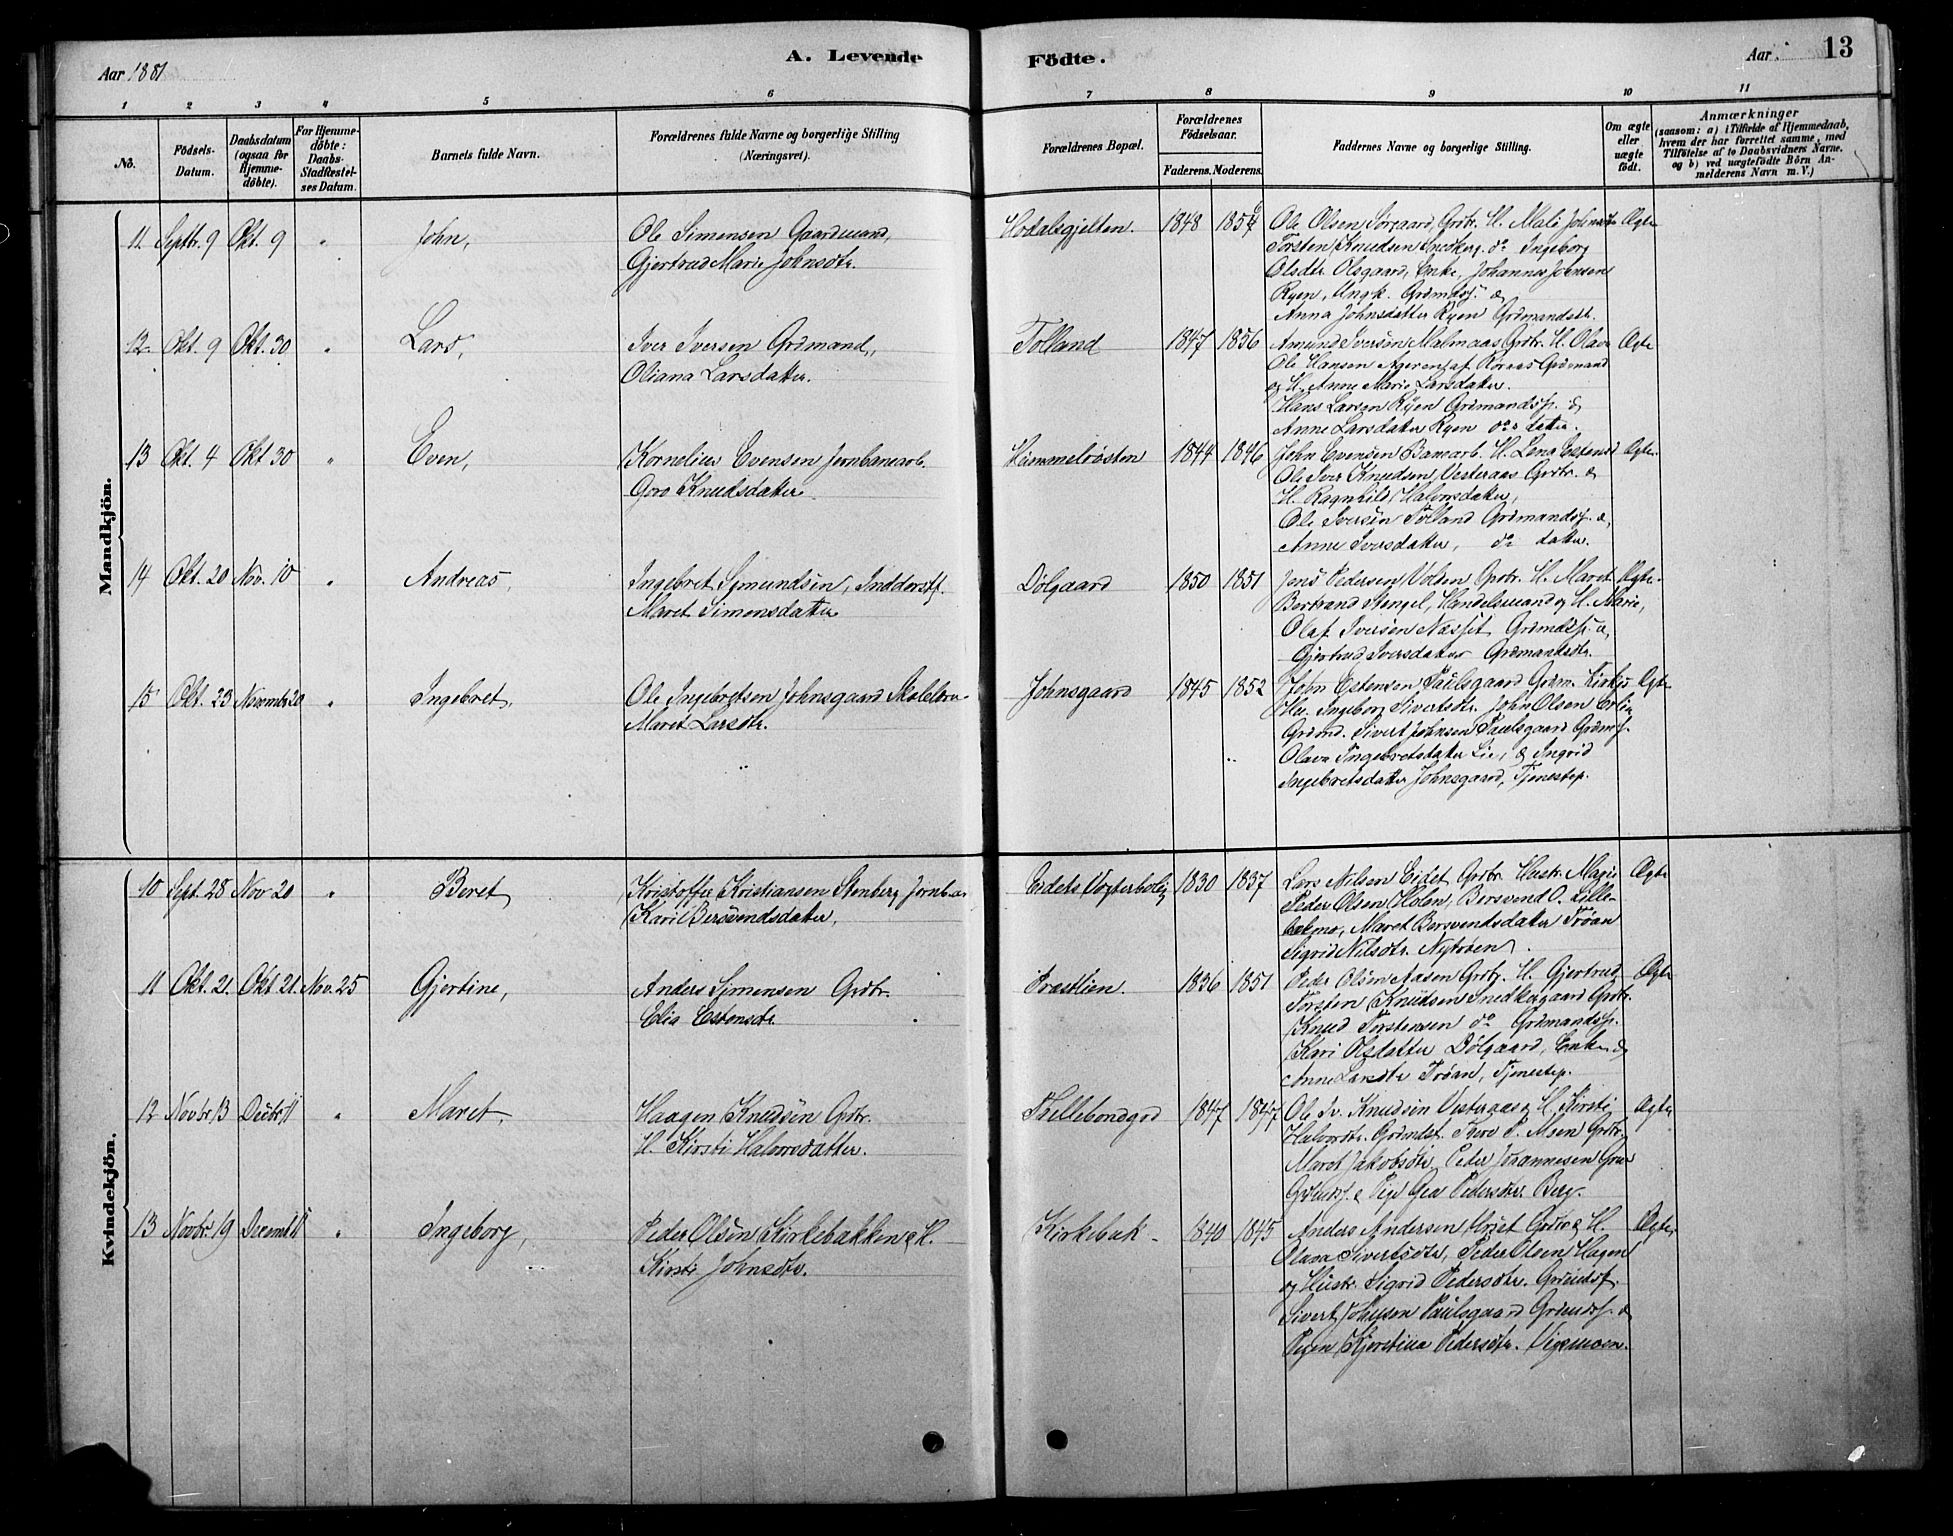 Aar 1881
A. Levende
Födte.
Aar.
13
1 2 3 4 5 6 7 8 9 10 11
No.
Födsels-Datum.
Daabsdatum (ogsaa for Hjemme-döbte).
For Hjemme-döbte: Daabs-Stadfæstel-ses Datum.
Barnets fulde Navn.
Forældrenes fulde Navne og borgerlige Stilling (Næringsvei).
Forældrenes Bopæl.
Forældrenes Födselsaar.
Faderens. Moderens.
Faddernes Navne og borgerlige Stilling.
Om ægte eller uægte födt.
Anmærkninger
(saasom: a) i Tilfælde af Hjemmedaab, hvem der har forrettet samme, med Tilföielse af to Daabsvidners Navne, og b) ved uægtefödte Börn An-melderens Navn m. V.)
Mandkjön.
11 Septbr. 9 Okt. 9 " John,
Ole Simensen Gaardmand,
Gjertrud Marie Johnsdtr.
Hodalsgjelten. 1848 1854
Ole Olsen Sørgaard, Grdbr. H. Mali Johnsdtr Ægte
Torsten Knudsen Snedkerg. do Ingeborg
Olsdtr. Olsgaard, Enke, Johannes Johnsen
Ryen, Ungk. Grdmds. &
Anna Johnsdatter Ryen Grdmandsdtr.
12 Okt. 9 Okt. 30 " Lars,
Iver Iversen Grdmand,
Oliana Larsdatter.
Tolland 1847 1856
Amund Iversen Malmaas Grdbr. H. Olava Ægte
Ole Hansen Ageren af Røraas Grdmand
og H. Anne Marie Larsdatter.
Hans Larsen Ryen Grdmandss. &
Anne Larsdatter Ryen do datter.
13 Okt. 4 Okt 30 " Even,
Kornelius Evensen Jernbanearb.
Goro Knudsdatter
Hummelrøsten 1844 1846
John Evensen Banearb. H. Lena Estensd Ægte.
Ole Iver Knudsen Vesteraas Grdbr. &
H. Ragnhild Halvorsdatter,
Ole Iversen Tolland Grdmandss. &,
Anne Iversdatter, do datter.
14 Okt. 20 Nov. 10 " Andreas,
Ingebret Symundsen, Indderst,
Maret Simensdatter
Dølgaard 1850 1851
Jens Pedersen Volden Grdbr. H. Maret Ægte.
Bertrand Stengel, Handelsmand og H. Marie,
Olaf Iversen Næsset Grdmdss. &,
Gjertrud Iversdatter Grdmandsdtr.
15 Okt. 23 Novembr 20 " Ingebret,
Ole Ingebretsen Johnsgaard
Maret Larsdtr.
Johnsgaard 1845 1852
John Estensen Paulsgaard Grdm. Ægte
Ingeborg Sivertsdtr. John Olsen
Grdmd. Sivert Johnsen Paulsgaard Grdmds.
Olava Ingebretsdatter Lie, & Ingrid
Ingebretsdatter Johnsgaard, Tjenestep.
Kvindekjön.
10 Sept. 28 Nov 20 " Beret
Kristoffer Kristiansen Stenberg Jernba
Kari Bersvendsdatter,
Eidets Vogterbolig 1830 1837
Lars Nilsen Eidet Grdbr. Hustr. Magie Ægte
Peder Olsen Holen, Bersvend O. Lille-
bakmo, Maret Bersvendsdatter Trøan
Sigrid Nilsdtr. Nytrøen.
11 Okt. 21. Okt 21. Nov. 25 Gjertine,
Anders Symensen Grdbr.
Elia Estensdtr.
Præstlien. 1836 1851
Peder Olsen Aasen Grdbr. H. Gjertrud Ægte
Torsten Knudsen Snedkergaard Grdbr.
Knud Torstensen do Grdmandss.
Kari Olsdatter Dølgaard, Enke &
Anne Larsdtr Trøan, Tjenestep.
12 Novbr 13 Decbr 11 " Maret,
Haagen Knudsen Grdbr.
H. Kirsti Halvorsdatter.
Tellebondgrd 1847 1847
Ole Iv. Knudsen Vesteraas og H. Kirsti Ægte
Halvorsdtr. Grdmdsf. Tore P. Moen Grdbr.
Maret Jakobsdtr, Peder Johannesen
Grdmds. & Pige Gea Pedersdtr. Berg.
13 Novbr. 19 Decembr 11 " Ingeborg,
Peder Olsen Kirkebakken & H.
Kirsti Johnsdtr.
Kirkebak- 1840 1845
Anders Andersen Moset Grdbr & H. Ægte
Olava Sivertsdtr, Peder Olsen Hagen
og Hustr. Sigrid Pedersdtr. Grdmdsf.
Sivert Johnsen Paulsgaard Grdmds. &
Pigen Kjerstina Pedersdtr. Vigsmoen.